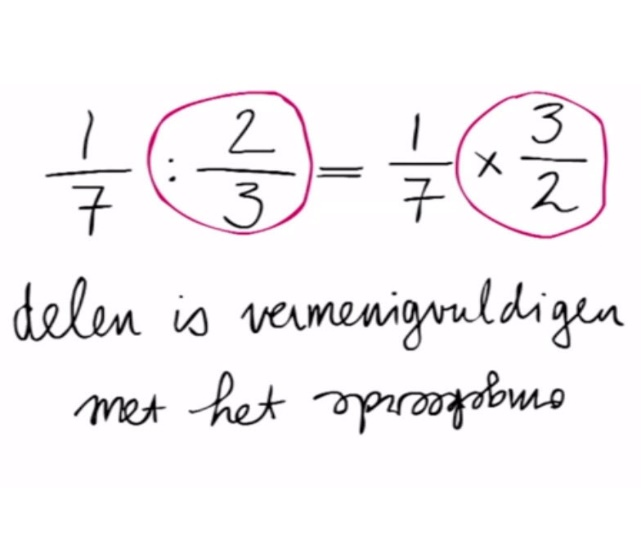 1/7 : 2/3 = 1/7 × 3/2
delen is vermenigvuldigen
met het omgekeerde